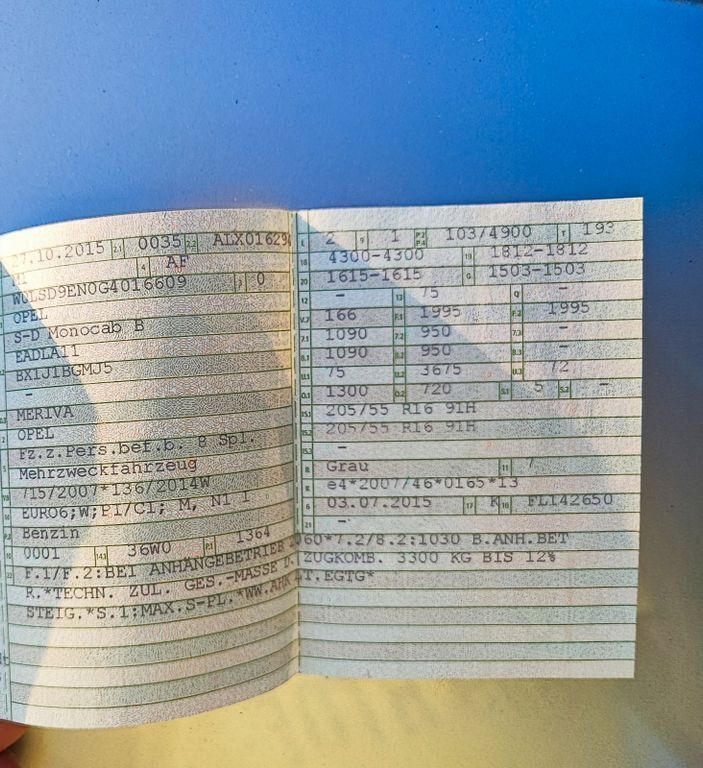 27.10.2015 2.1 0035 2.2 ALX01629
M1 4 AF
W0LSD9EN0G4016609 3 0
OPEL
S-D Monocab B
EADLA11
BX1J1BGMJ5
-
MERIVA
OPEL
Fz.z.Pers.bef.b. 8 Spl.
Mehrzweckfahrzeug
715/2007*136/2014W
EURO6;W;PI/CI; M, N1 I
Benzin
0001 14.1 36W0 P.1 1364
L 2 9 1 P.2 P.4 103/4900 T 193
18 4300-4300 19 1812-1812
20 1615-1615 G 1503-1503
12 - 13 75 Q -
V.7 166 F.1 1995 F.2 1995
7.1 1090 7.2 950 7.3 -
8.1 1090 8.2 950 8.3 -
U.1 75 U.2 3675 U.3 72
O.1 1300 O.2 720 S.1 5 S.2 -
15.1 205/55 R16 91H
15.2 205/55 R16 91H
15.3 -
R Grau 11 7
K e4*2007/46*0165*13
6 03.07.2015 17 K 16 FL142650
21 -
22 F.1/F.2:BEI ANHÄNGEBETRIEB 2060*7.2/8.2:1030 B.ANH.BET
R.*TECHN. ZUL. GES.-MASSE D. ZUGKOMB. 3300 KG BIS 12%
STEIG.*S.1:MAX.S-PL.*WW.AHK LT.EGTG*